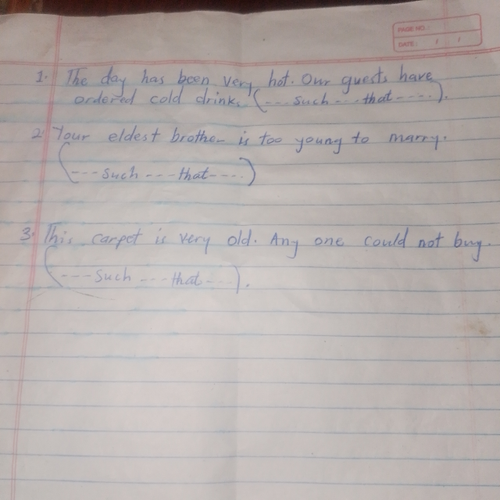 PAGE NO.:
DATE: / /
1. The day has been very hot. Our guests have
ordered cold drink. (--- such --- that ----).
2. Your eldest brother is too young to marry.
(--- such --- that ----)
3. This carpet is very old. Any one could not buy.
(---- such --- that ---).